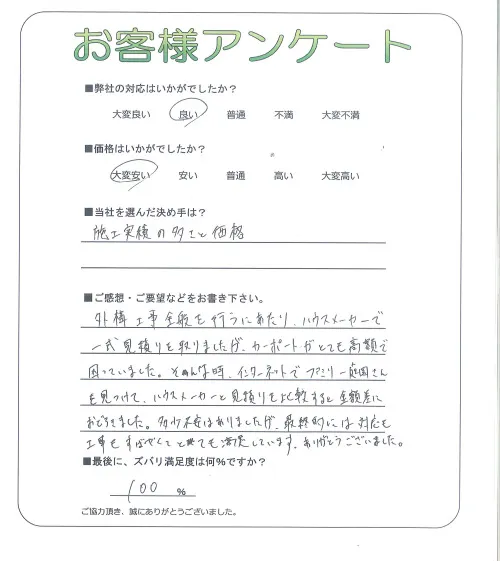 お客様アンケート
■弊社の対応はいかがでしたか？
大変良い 良い 普通 不満 大変不満
■価格はいかがでしたか？
大変安い 安い 普通 高い 大変高い
■当社を選んだ決め手は？
施工実績の多さと価格
■ご感想・ご要望などをお書き下さい。
外構工事全般を行うにあたり、ハウスメーカーで
一式見積りを取りましたが、カーポートがとても高額で
困っていました。そんな時、インターネットでファミリー庭園さん
を見つけて、ハウスメーカーと見積りを比較すると金額差に
おどろきました。多少不安はありましたが、最終的には対応も
工事もすばやくてとても満足しています。ありがとうございました。
■最後に、ズバリ満足度は何%ですか？
100 %
ご協力頂き、誠にありがとうございました。